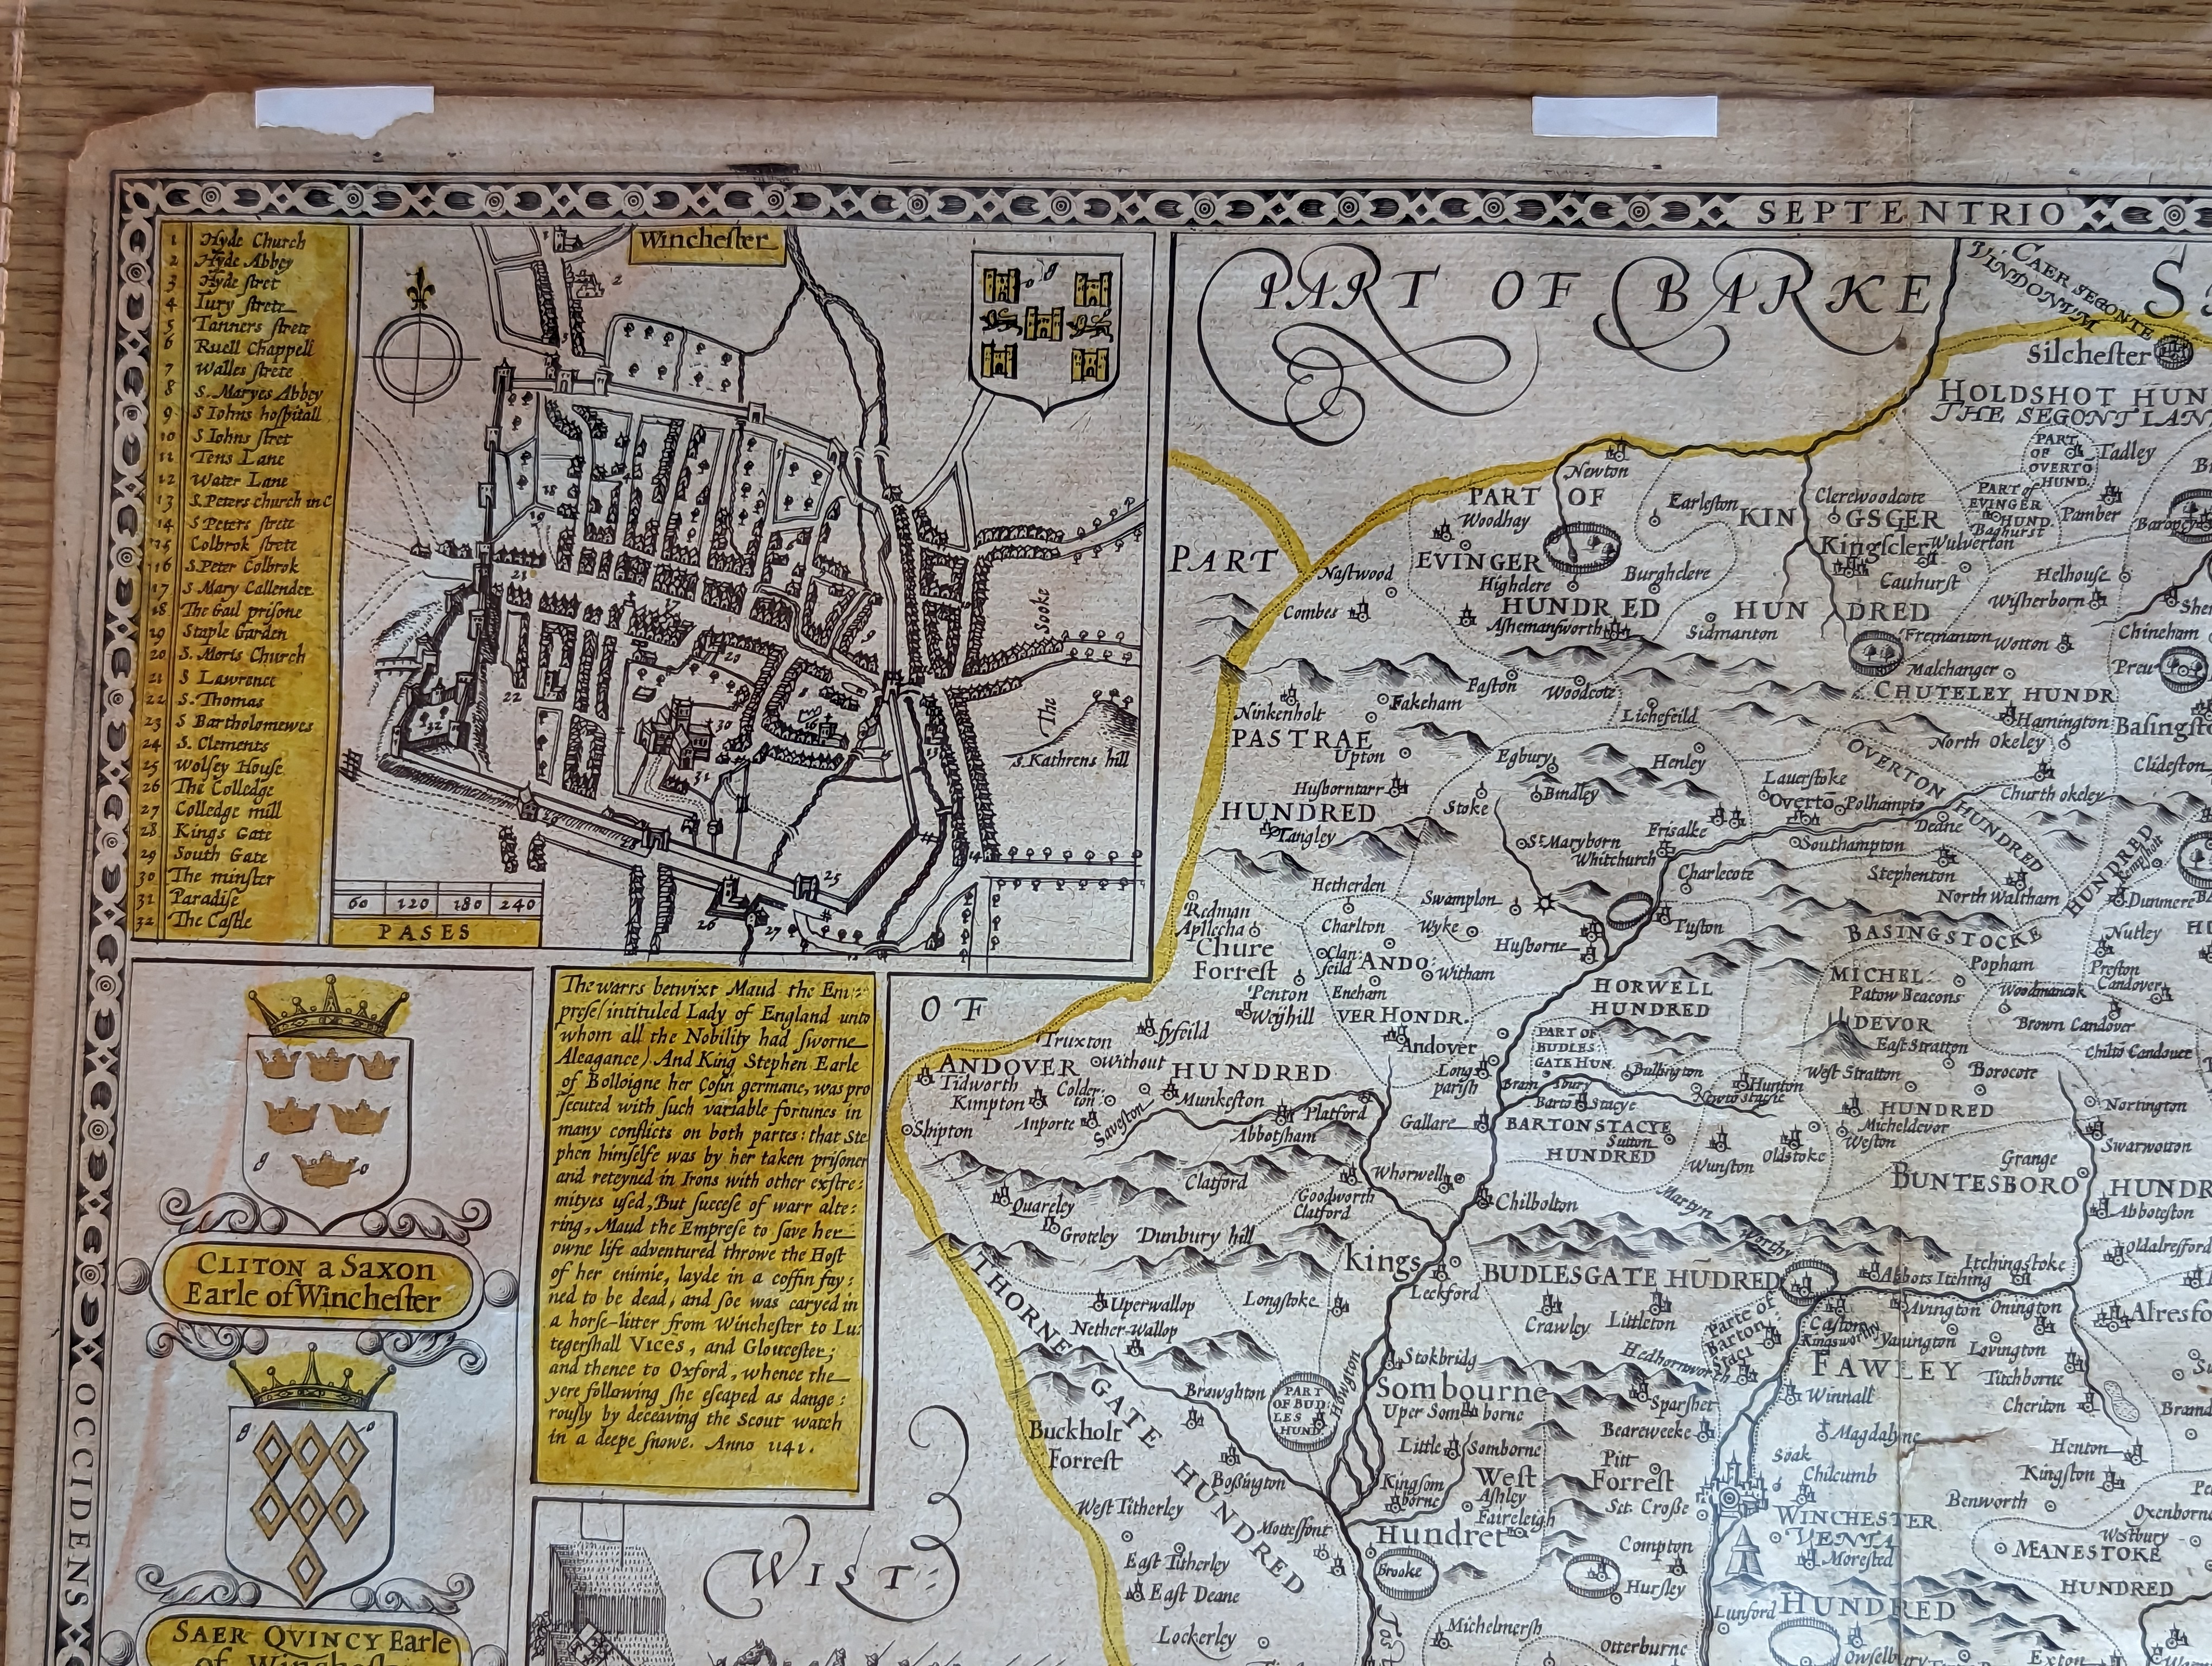 SEPTENTRIO
OCCIDENS
Winchester
1 Hyde Church
2 Hyde Abbey
3 Hyde stret
4 Iury strete
5 Tanners strete
6 Ruell Chappell
7 Walles strete
8 S. Maryes Abbey
9 S Iohns hospitall
10 S Iohns stret
11 Tens Lane
12 Water Lane
13 S. Peters church in C
14 S Peters strete
15 Colbrok strete
16 S. Peter Colbrok
17 S Mary Callender
18 The Gail prisone
19 Staple Garden
20 S. Moris Church
21 S Lawrence
22 S. Thomas
23 S Bartholomewes
24 S. Clements
25 Wolsey House
26 The Colledge
27 Colledge mill
28 Kings Gate
29 South Gate
30 The minster
31 Paradise
32 The Castle
60 120 180 240
PASES
The Sooke
S. Kathrens hill
CLITON a Saxon
Earle of Winchester
SAER QVINCY Earle
of
The warrs betwixt Maud the Em
prese/intituled Lady of England unto
whom all the Nobility had sworne
Aleagance) And King Stephen Earle
of Bolloigne her Cosin germane, was pro
secuted with such variable fortunes in
many conflicts on both partes: that Ste
phen himselfe was by her taken prisoner
and reteyned in Irons with other exstre:
mityes used, But succese of warr alte:
ring, Maud the Emprese to save her
owne life adventured throwe the Host
of her enimie, layde in a coffin fay:
ned to be dead, and soe was caryed in
a horse-litter from Winchester to Lu:
tegershall Vices, and Gloucester;
and thence to Oxford, whence the
yere following she escaped as dange:
rously by deceaving the Scout watch
in a deepe snowe. Anno 1141.
PART OF BARKE
PART
OF
WIST:
CAER SEGONTE
VINDONUM
Silchester
HOLDSHOT HUN
THE SEGONT LAN
PART
OF
OVERTO
HUND.
Tadley
Newton
PART OF
Woodhay
EVINGER
HUNDRED
Highclere
Burghclere
Ashemansworth
Earleston
KIN
GSGER
Clerewoodcote
Kingscler
PART of
EVINGER
HUND.
Baghurst
Pamber
Wulverton
Cauhurst
Helhouse
Wisherborn
HUN DRED
Sidmanton
Fremanton
Wotton
Chineham
Malchanger
CHUTELEY HUNDR
Hamington
Basingst
Nastwood
Combes
Faston
Woodcote
Fakeham
Ninkenholt
Lichefeild
PASTRAE
HUNDRED
Upton
Egbury
Henley
North Okeley
OVERTON HUNDRED
Clideston
Husborntarr
Stoke
Bindley
Lauerstoke
Overto
Polhampto
Church okeley
Tangley
St. Maryborn
Frisalke
Whitchurch
Deane
Southampton
Charlecote
Stephenton
North Waltham
HUNDRED
Kempsholt
Dunmere
Hetherden
Swamplon
Redman
Apllecha
Charlton
Wyke
Husborne
Tuston
BASINGSTOCKE
Nutley
Chure
Forrest
Clan
feild
ANDO
VER HONDR.
Witham
MICHEL:
DEVOR
HUNDRED
Popham
Preston
Candover
Patow Beacons
Woodmancok
Penton
Eneham
Weyhill
HORWELL
HUNDRED
Brown Candover
Truxton
fyfeild
Andover
PART OF
BUDLES
GATE HUN.
East Stratton
Chilto Candover
ANDOVER without HUNDRED
Tidworth
Kimpton
Colder
ton
Munkeston
Long
parish
Bulbington
Hunton
West Stratton
Borocote
Bram sbury
Barto Stacye
Newto stacie
Shipton
Anporte
Saveston
Platford
Abbotsham
Gallare
BARTON STACYE
HUNDRED
Sutton
Wunston
Oldstoke
Micheldevor
Weston
Nortington
Swarwouton
Clatford
Whorwell
Quareley
Goodworth
Clatford
Chilbolton
Grange
BUNTESBORO HUNDR
Abboteston
Groteley
Dunbury hill
Martyn
Worthy
Oldalresford
Kings
Sombourne
Hundret
BUDLESGATE HUDRED
Abbots Itching
Itchingstoke
Leckford
Uperwallop
Longstoke
Crawley
Littleton
Parte of
Barton
Staci
Avington
Onington
Alresfo
Nether-wallop
Kingsworthy
Yauington
Lovington
THORNE GATE HUNDRED
Stokbridg
Hedhornworth
FAWLEY
HUNDRED
Titchborne
Brawghton
PART
OF BUD
LES
HUND.
Houghton
Uper Somborne
Sparshet
Winnall
Cheriton
Buckholt
Forrest
Little Somborne
Beareweeke
Magdalyne
Soak
Henton
Bossington
Kingsom
borne
West
Forrest
Pitt
Chilcumb
Kingston
Ashley
Faireleigh
Sct. Crosse
WINCHESTER
VENTA
Benworth
West Titherley
Mottesfont
Compton
Morested
Westbury
MANESTOKE
HUNDRED
East Titherley
Brooke
Hursley
East Deane
Lunford
Lockerley
Michelmersh
Otterburne
Owselbury
Exton